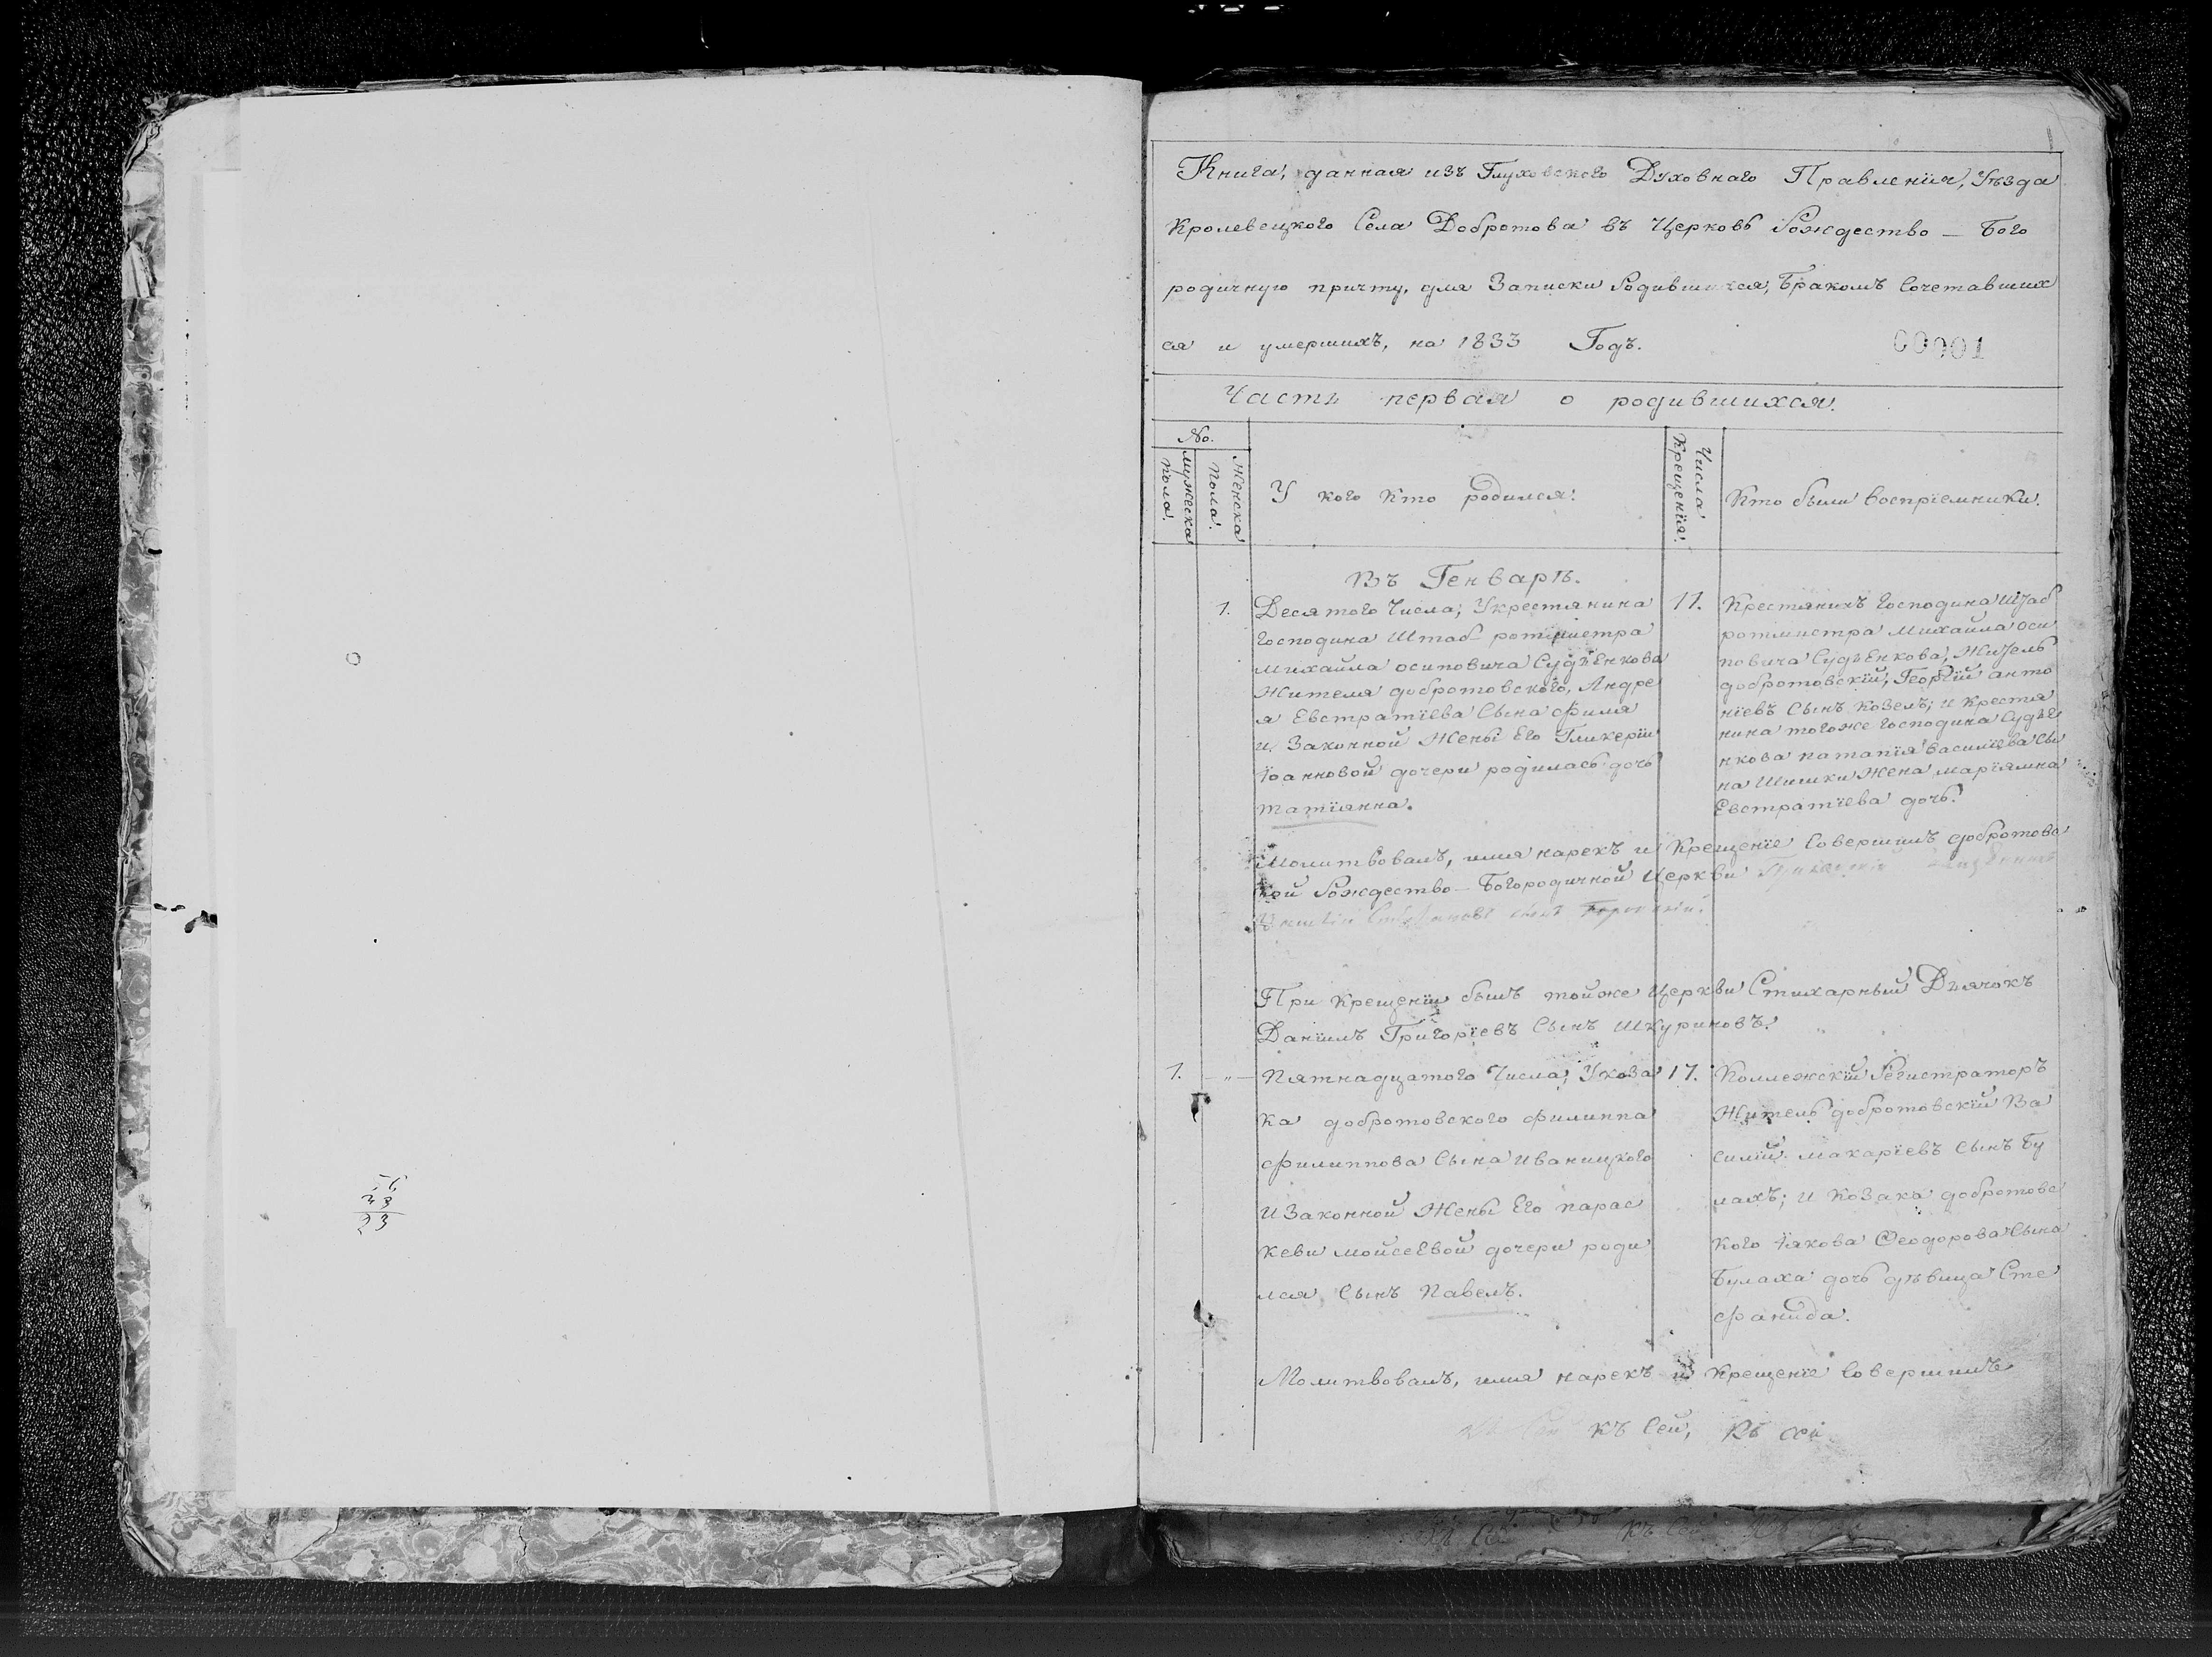 Книга, данная изъ Глуховского Духовнаго Правленія, Уѣзда
Кролевецкого Села Добротова въ Церковь Рождество — Бого
родичную причту, для Записки Родившихся, Бракомъ Сочетавших
ся и умершихъ, на 1833 Годъ.
00001
Часть первая о родившихся.
No.
мужеска пола.
женска пола.
У кого Кто родился.
Числа Крещенія.
Кто были Воспріемники.
Въ Генварѣ.
1.
Десятого Числа, У крестянина
Господина Штаб-ротмистра
Михайла осиповича Судѣенкова
Жителя добротовского, Андре
я Евстратіева Сына Филя
и Законной Жены Его Гликеріи
Іоанновой дочери родилась дочь
татіянна.
11.
Крестянинъ Господина Штаб
ротмистра Михайла оси
повича Судѣенкова, Житель
добротовскій, Георгій анто
ніевъ Сынъ Козелъ; и крестя
нина тогоже Господина Судѣе
нкова патапія василіева Сы
на Шишки Жена маріямна
Евстратіева дочь.
Молитвовалъ, имя нарекъ и Крещеніе Совершилъ добротовс
кой Рождество-Богородичной Церкви
сынъ
При Крещеніи былъ тойже Церкви Стихарный Дьячокъ
Даніилъ Григоріевъ Сынъ Шкуриновъ.
1. — " —
Пятнадцатого Числа, У коза
ка добротовского филиппа
филиппова Сына Иваницкого
И Законной Жены Его парас
кеви мойсеевой дочери роди
лся Сынъ Павелъ.
17.
Коллежскій Регистраторъ
Житель добротовскій Ва
силій макаріевъ Сынъ Бу
лахъ; и Козака добротовс
кого Іякова Ѳеодорова Сына
Булаха дочь дѣвица Сте
фанида.
Молитвовалъ, имя нарекъ и Крещеніе Совершилъ
къ Сей,
23